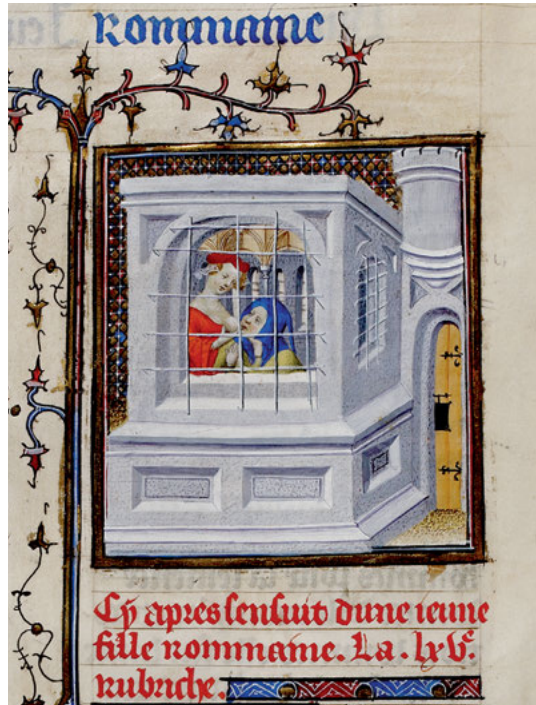 Rommaine
Cy apres sensuit dune ieune
fille rommaine. La. lxve.
rubriche.